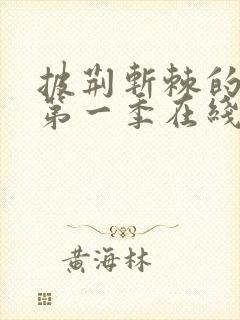 披荆斬棘的
第一季在綫
黄海林